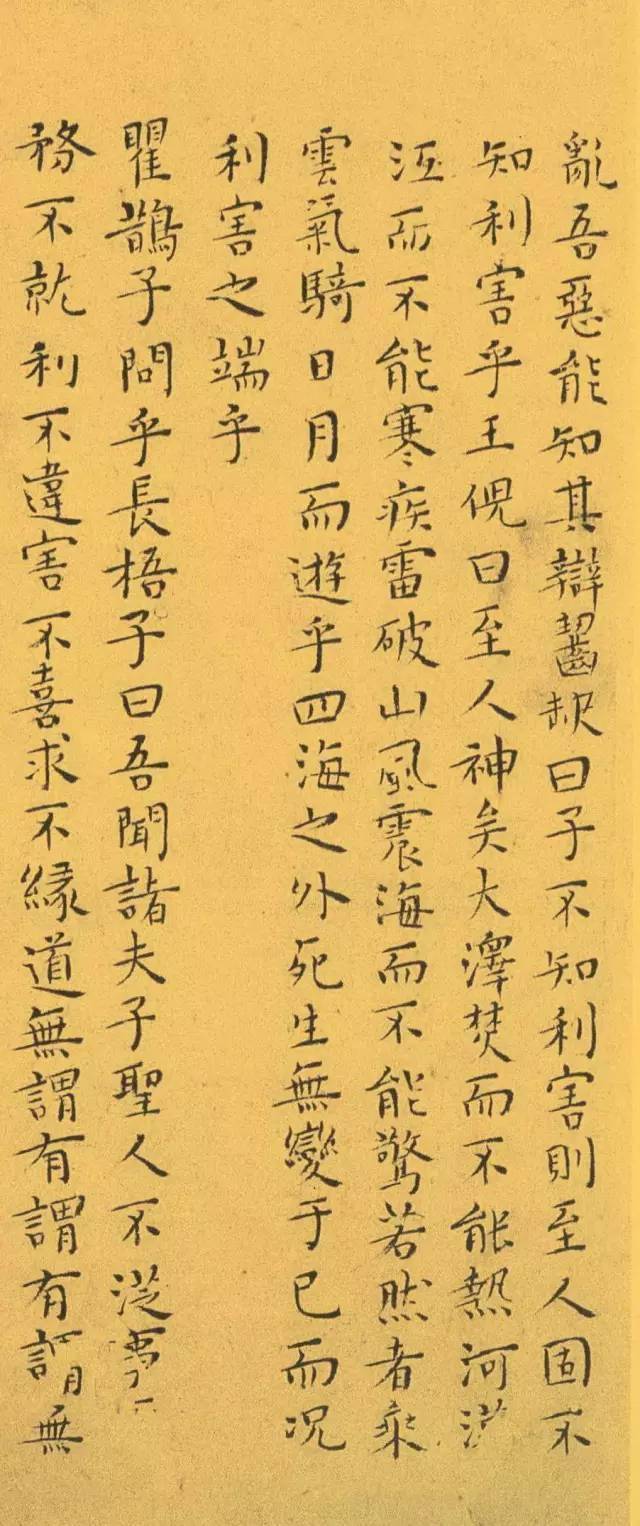 亂吾惡能知其辯齧缺曰子不知利害則至人固不
知利害乎王倪曰至人神矣大澤焚而不能熱河漢
沍而不能寒疾雷破山風震海而不能驚若然者乘
雲氣騎日月而遊乎四海之外死生無變于已而况
利害之端乎
瞿鵲子問乎長梧子曰吾聞諸夫子聖人不從事
務不就利不違害不喜求不緣道無謂有謂有謂無